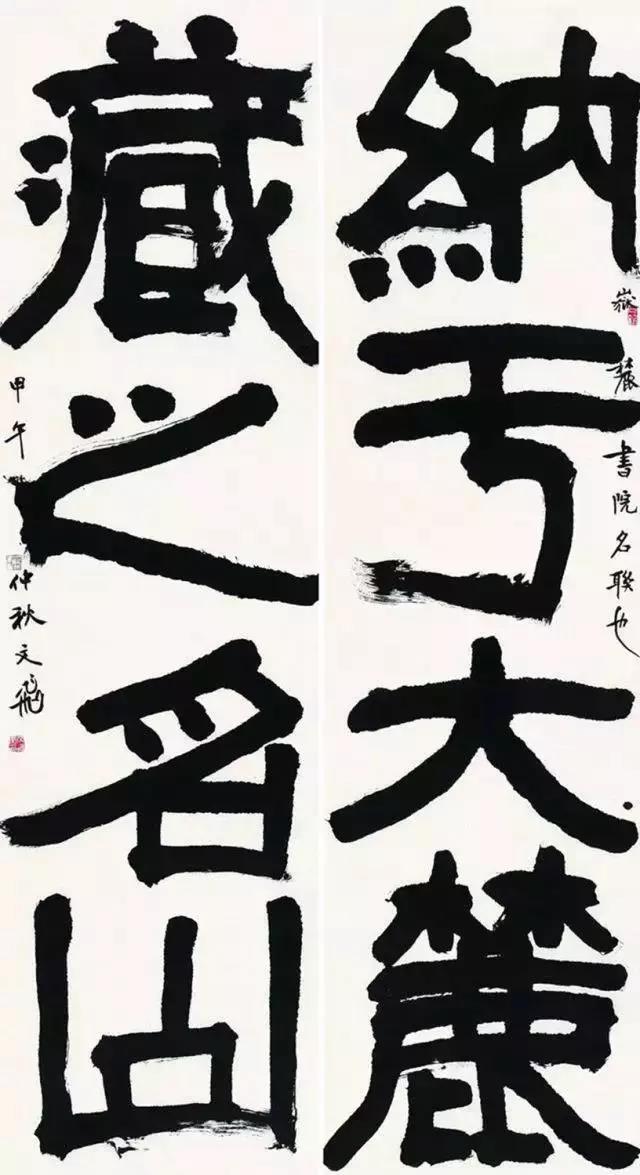 納于大麓
嶽麓書院名聯也
藏之名山
甲午仲秋文飛